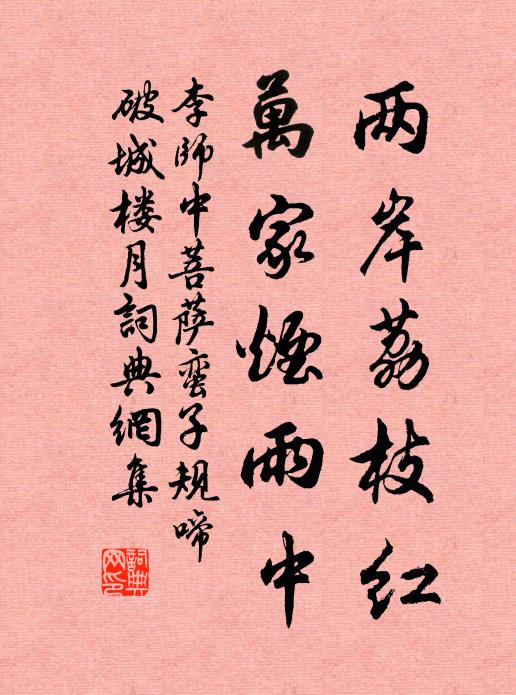 两岸荔枝红
萬家煙雨中
李师中菩萨蛮子规啼
破城楼月詞典網集
詞典网印